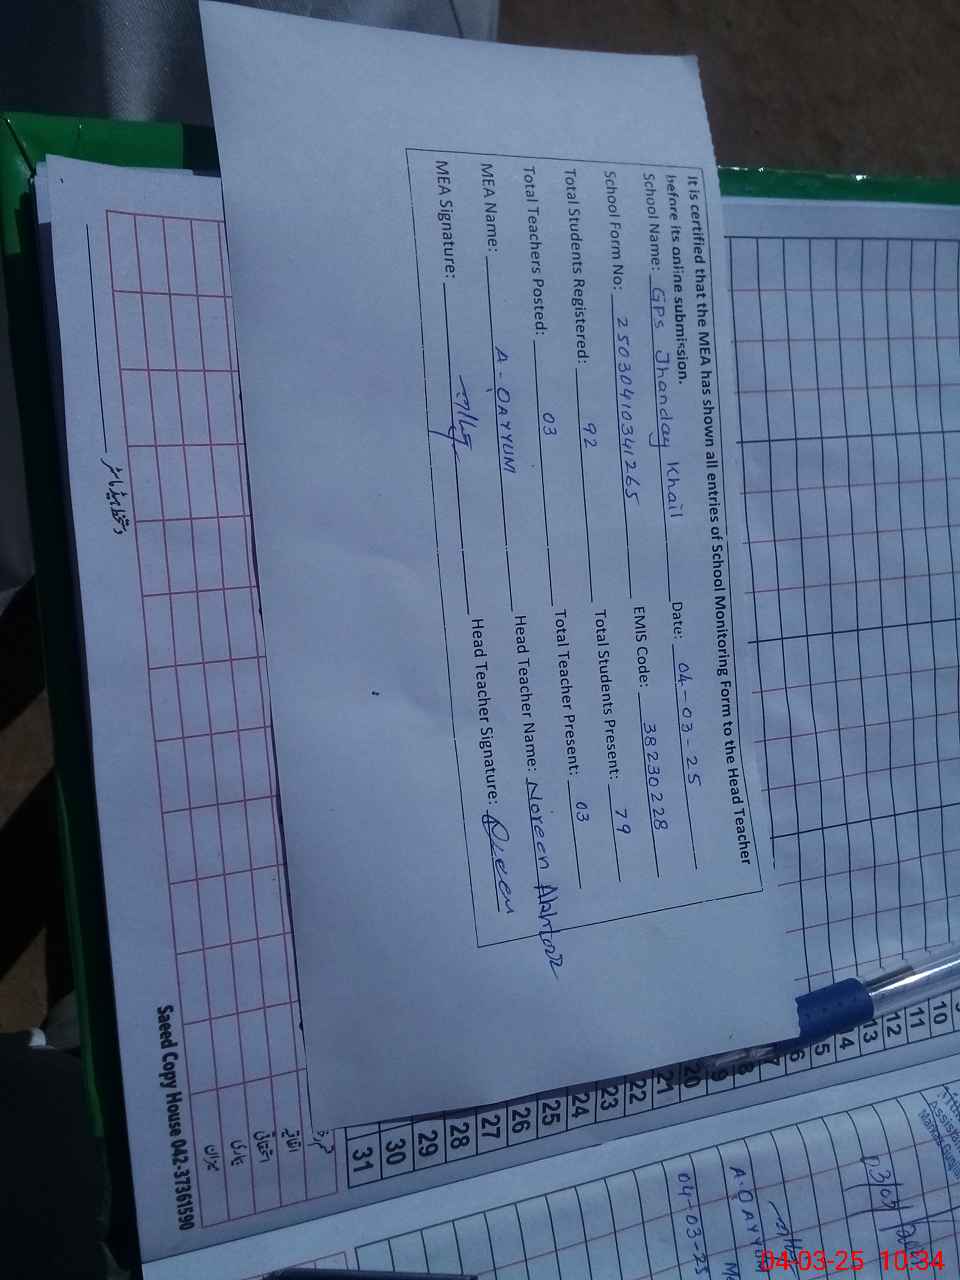 It is certified that the MEA has shown all entries of School Monitoring Form to the Head Teacher
before its online submission.
School Name: GPS Jhanday Khail Date: 04-03-25
School Form No: 2503041034126 5 EMIS Code: 38230228
Total Students Registered: 92 Total Students Present: 79
Total Teachers Posted: 03 Total Teacher Present: 03
MEA Name: A-QAYYUM Head Teacher Name: Noreen Akhtar
MEA Signature: Head Teacher Signature:
10
11
12
13
20
21
22
23
24
25
26
27
28
29
30
31
Saeed Copy House 042-37361590
A.QAYYUM
04-03-25
04-03-25 10:34